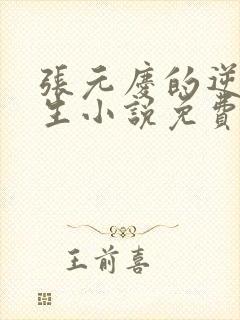 張元慶的逆
生小說免費
王前喜